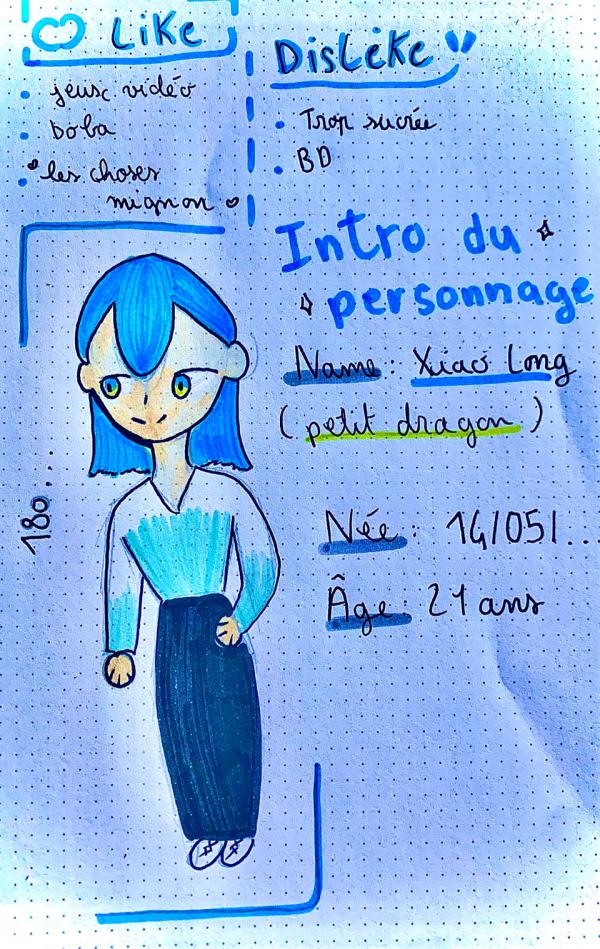 LiKe
jeux vidéo
boba
les choses
mignon
DisLéKe
Trop sucrée
BD
Intro du
personnage
Name : Xiao Long
(petit dragon)
Née : 14/05/...
Âge : 21 ans
180...